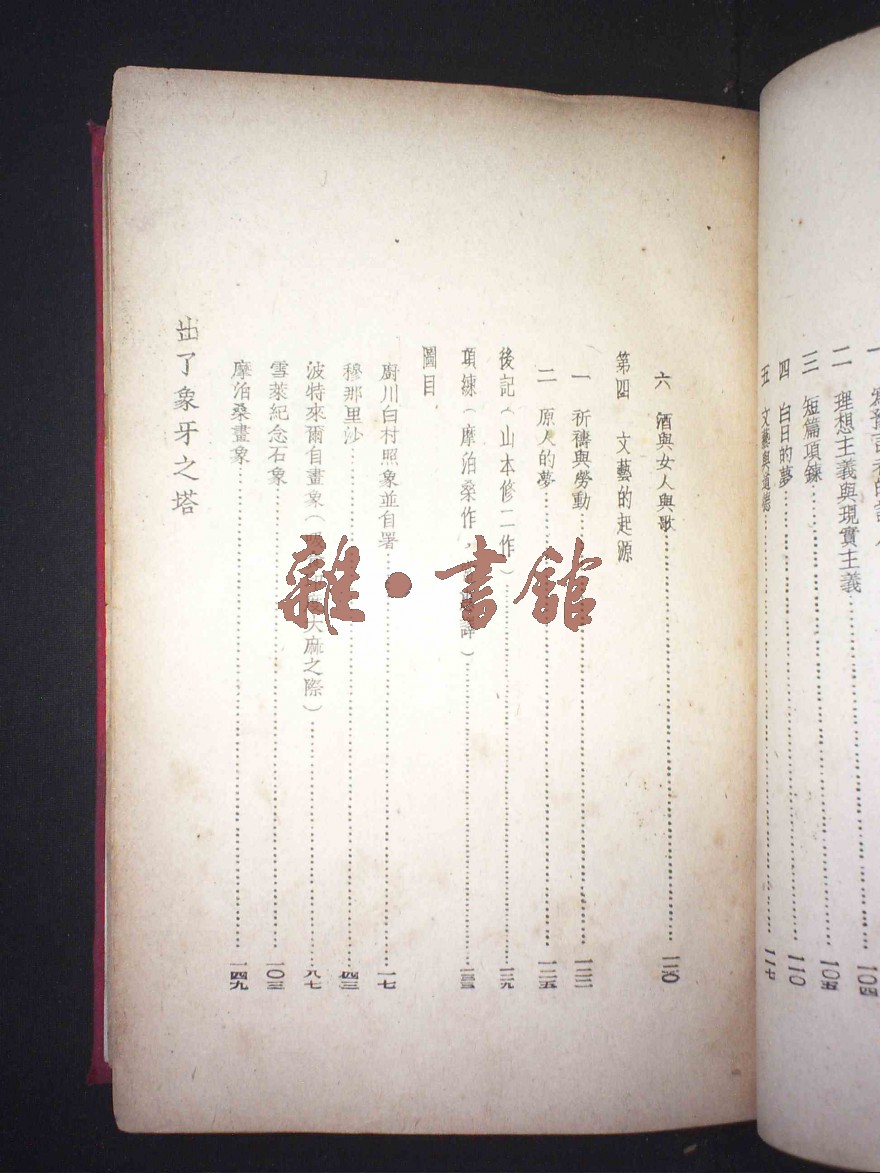 二 理想主義與現實主義……一〇四
三 短篇項鍊……一〇五
四 白日的夢……一一〇
五 文藝與道德……一一七
六 酒與女人與歌……一二〇
第四 文藝的起源
一 祈禱與勞動……一二二
二 原人的夢……一二五
後記(山本修二作)……一二九
項鍊(摩泊桑作,譯)……一三三
圖目
廚川白村照象並自署……一七
穆那里沙……四三
波特來爾自畫象(大麻之際)……八七
雪萊紀念石象……一〇三
摩泊桑畫象……一四九
出了象牙之塔
雜·書館